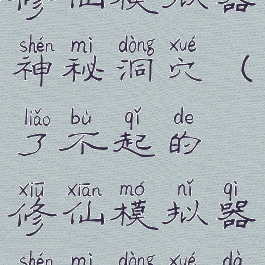 修仙模拟器
shén mì dòng xué
神秘洞穴（
liǎo bù qǐ de
了不起的
xiū xiān mó nǐ qì
修仙模拟器
shén mì dòng xué dà